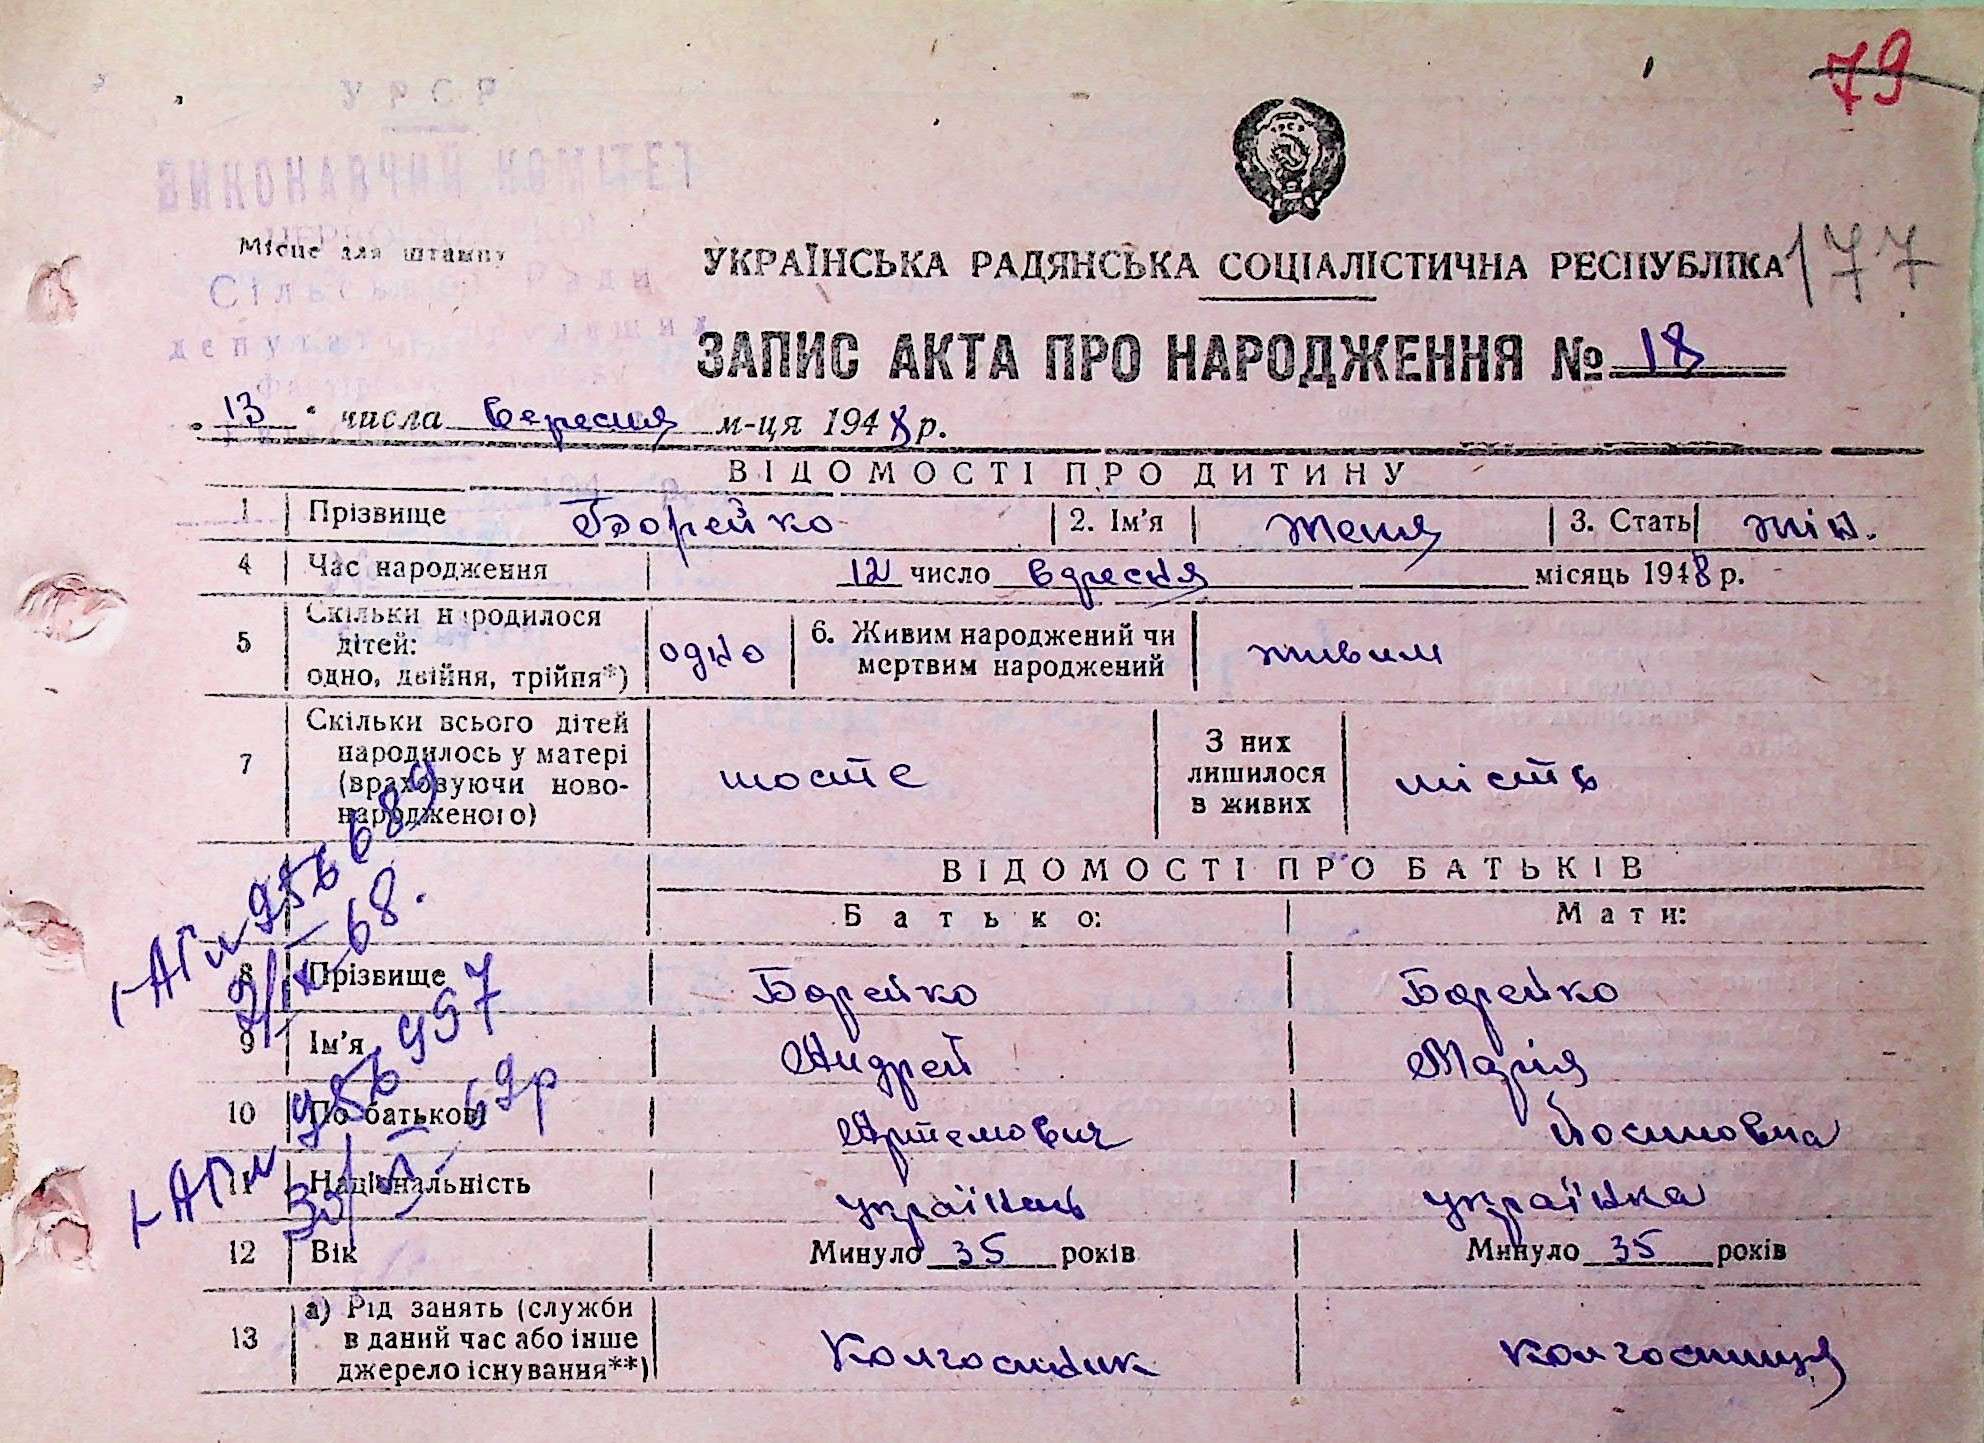 79
УРСР
ВИКОНАВЧИЙ КОМІТЕТ
Місце для штампу
Сільської Ради
депутатів трудящих
УКРАЇНСЬКА РАДЯНСЬКА СОЦІАЛІСТИЧНА РЕСПУБЛІКА
177
ЗАПИС АКТА ПРО НАРОДЖЕННЯ № 18
„13" числа вересня м-ця 1948 р.
ВІДОМОСТІ ПРО ДИТИНУ
1 Прізвище Борейко 2. Ім'я Женя 3. Стать жін.
4 Час народження 12 число вересня місяць 1948 р.
5 Скільки народилося
дітей:
одно, двійня, трійня*) одно 6. Живим народжений чи
мертвим народжений живим
7 Скільки всього дітей
народилось у матері
(враховуючи ново-
народженого) шосте З них
лишилося
в живих шість
ВІДОМОСТІ ПРО БАТЬКІВ
Батько: Мати:
8 Прізвище Борейко Борейко
9 Ім'я Андрей Марія
10 По батькові Артемович Йосиповна
11 Національність українець українка
12 Вік Минуло 35 років Минуло 35 років
13 а) Рід занять (служби
в даний час або інше
джерело існування**) Колгоспник колгоспниця
68.
69р